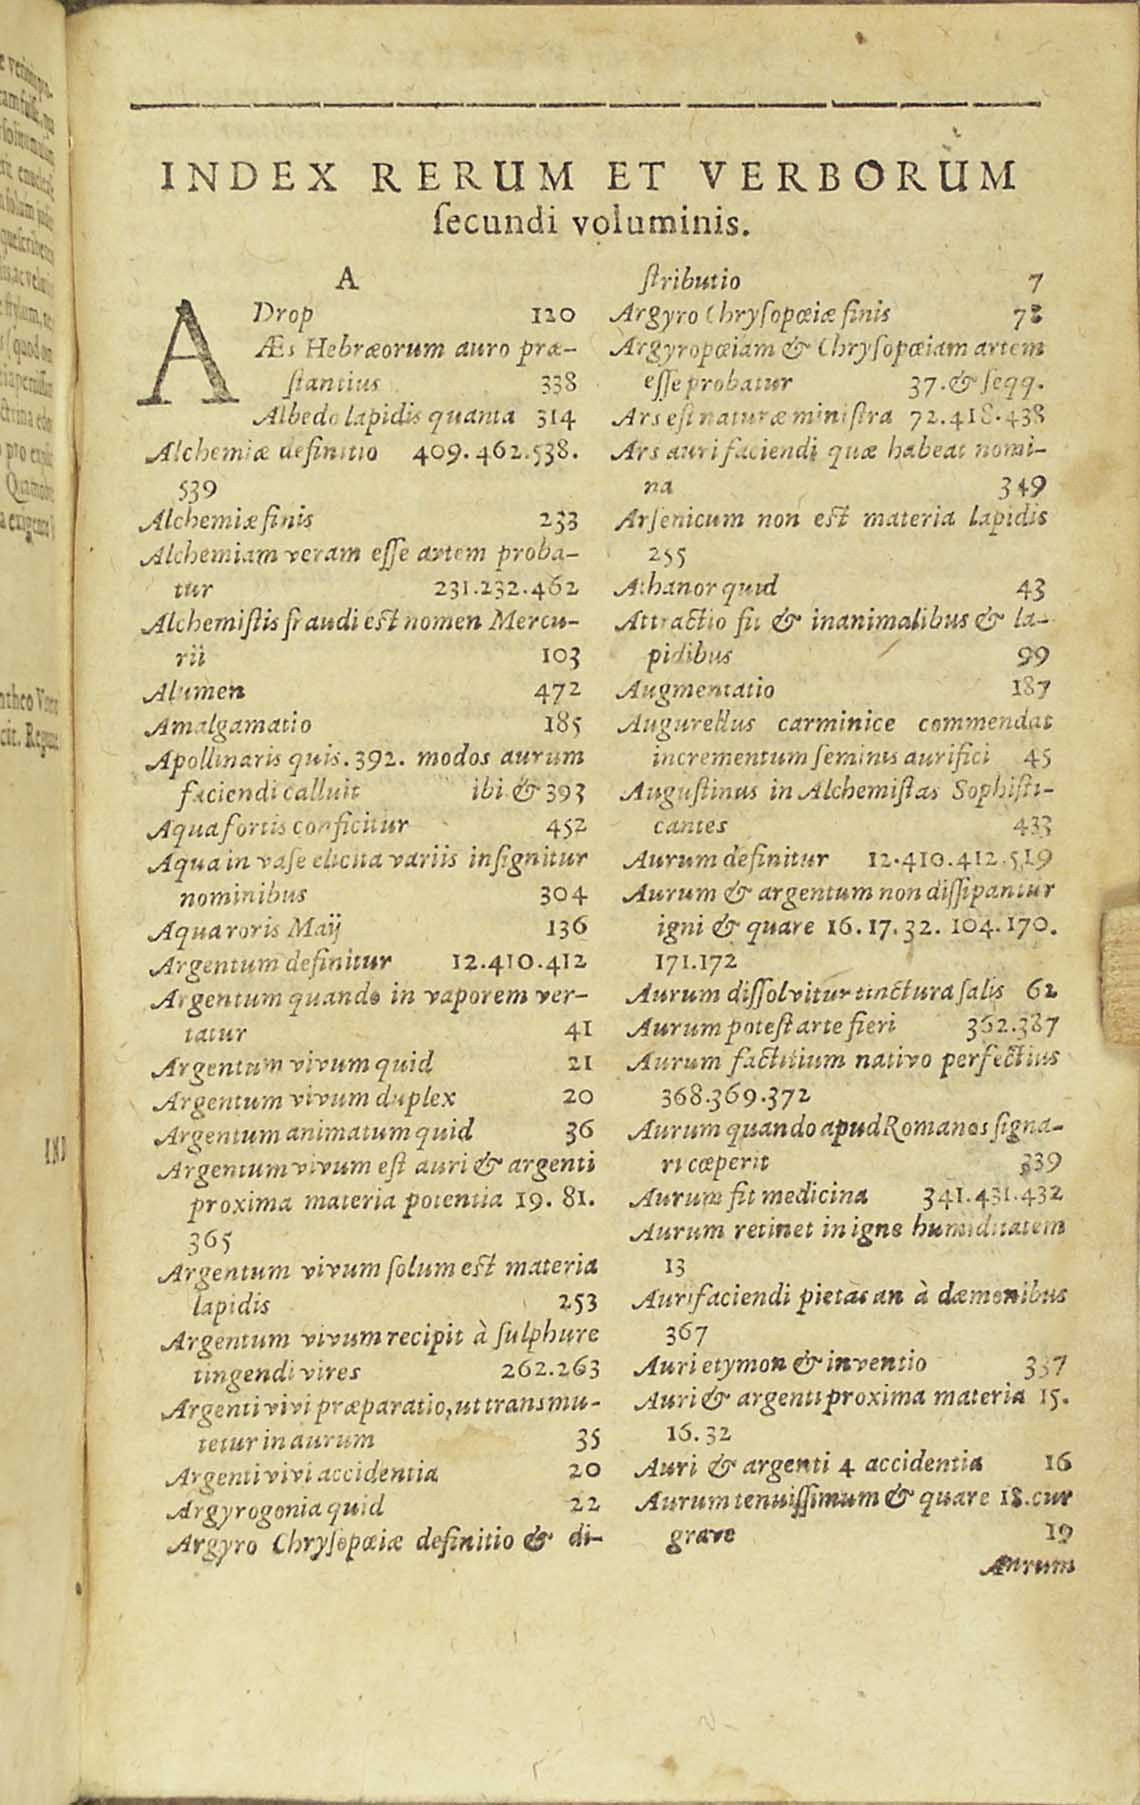 INDEX RERUM ET VERBORUM
ſecundi voluminis.
A
ADrop 120
Æs Hebræorum auro præ-
ſtantius 338
Albedo lapidis quanta 314
Alchemiæ definitio 409. 462. 538.
539
Alchemiæ finis 233
Alchemiam veram eſſe artem proba-
tur 231. 232. 462
Alchemiſtis fraudi eſt nomen Mercu-
rii 103
Alumen 472
Amalgamatio 185
Apollinaris quis. 392. modos aurum
faciendi calluit ibi & 393
Aqua fortis conficitur 452
Aqua in vaſe elicita variis inſignitur
nominibus 304
Aqua roris Maij 136
Argentum definitur 12. 410. 412
Argentum quando in vaporem ver-
tatur 41
Argentum vivum quid 21
Argentum vivum duplex 20
Argentum animatum quid 36
Argentum vivum eſt auri & argenti
proxima materia potentia 19. 81.
365
Argentum vivum ſolum eſt materia
lapidis 253
Argentum vivum recipit à ſulphure
tingendi vires 262. 263
Argenti vivi præparatio, ut transmu-
tetur in aurum 35
Argenti vivi accidentia 20
Argyrogonia quid 22
Argyro Chryſopœiæ definitio & di-
ſtributio 7
Argyro Chryſopœiæ finis 78
Argyropœiam & Chryſopœiam artem
eſſe probatur 37. & ſeqq.
Ars eſt naturæ miniſtra 72. 418. 438
Ars auri faciendi quæ habeat nomi-
na 349
Arſenicum non eſt materia lapidis
255
Athanor quid 43
Attractio fit & inanimalibus & la-
pidibus 99
Augmentatio 187
Augurellus carminice commendat
incrementum ſeminis aurifici 45
Auguſtinus in Alchemiſtas Sophiſti-
cantes 433
Aurum definitur 12. 410. 412. 519
Aurum & argentum non diſſipantur
igni & quare 16. 17. 32. 104. 170.
171. 172
Aurum diſſolvitur tinctura ſalis 62
Aurum poteſt arte fieri 362. 387
Aurum factitium nativo perfectius
368. 369. 372
Aurum quando apud Romanos ſigna-
ri cœperit 339
Aurum fit medicina 341. 431. 432
Aurum retinet in igne humiditatem
13
Auri faciendi pietas an à dæmonibus
367
Auri etymon & inventio 337
Auri & argenti proxima materia 15.
16. 32
Auri & argenti 4 accidentia 16
Aurum tenuiſſimum & quare 18. cur
grave 19
Aurum